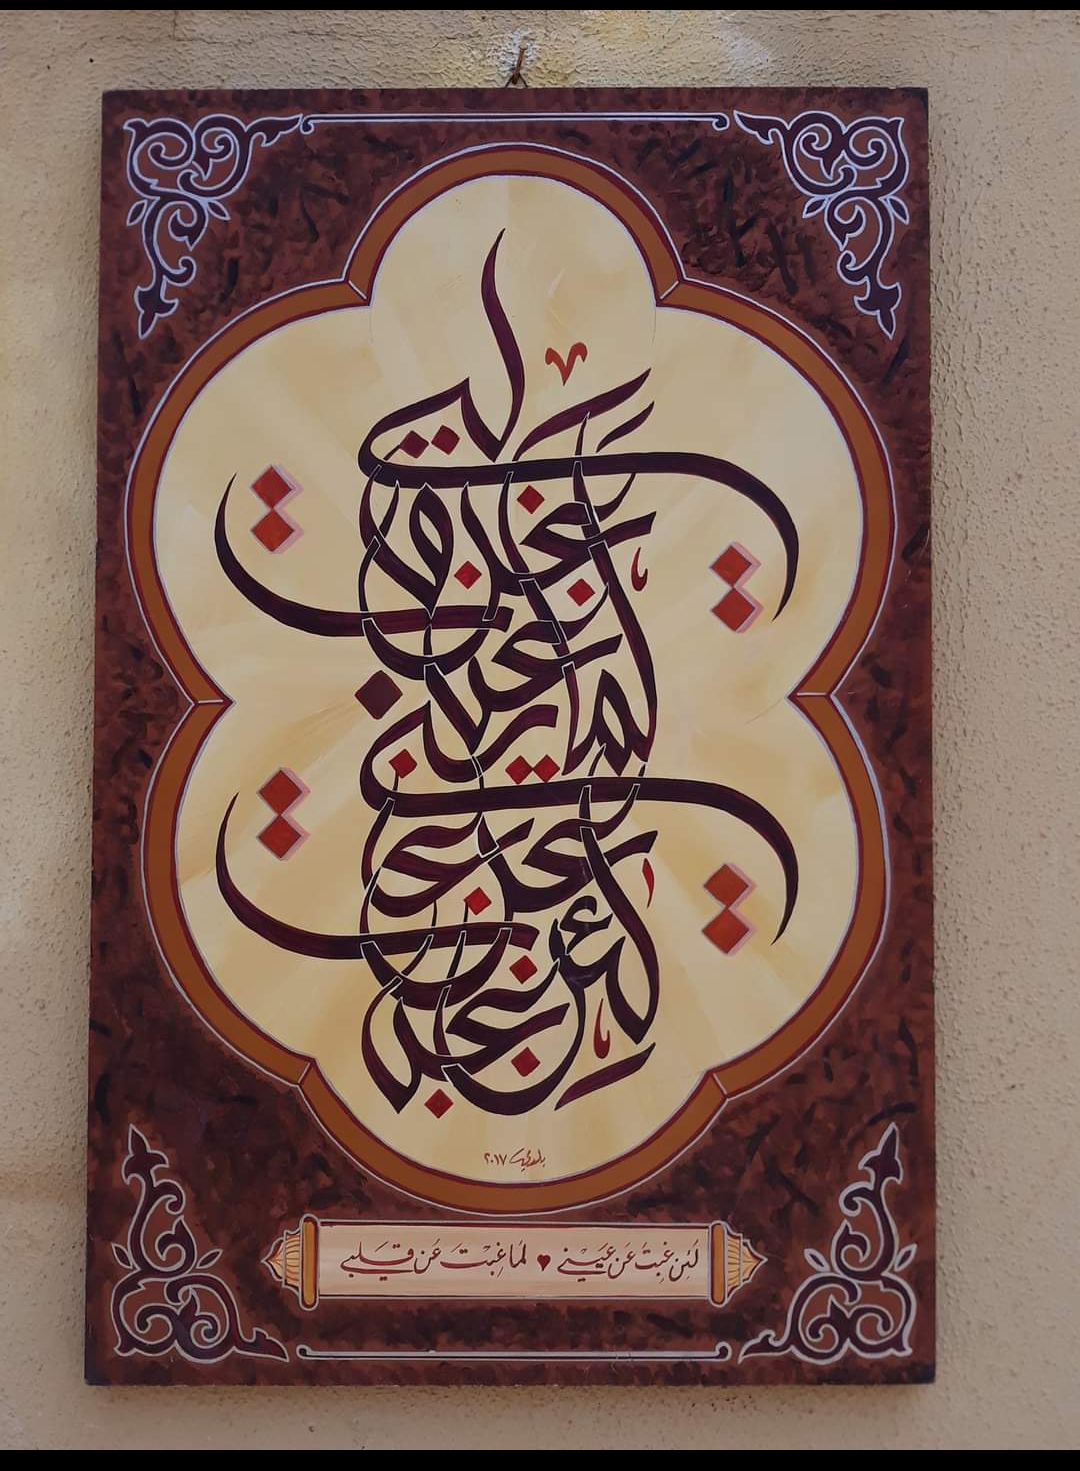 لئن غبت عن عيني
لما غبت عن قلبي
٢٠١٧
لَئِن غِبتَ عَن عَيْنِي ♥ لَمَا غِبْتَ عَن قَلبِي